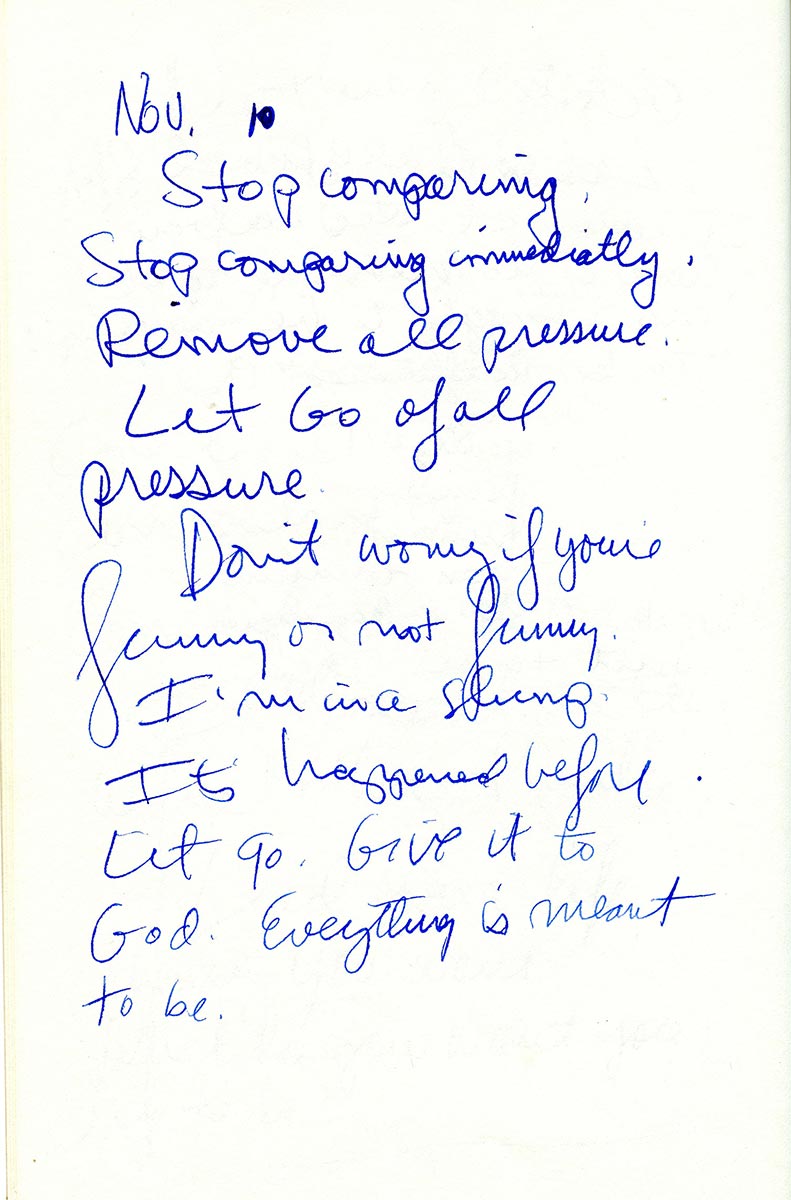 Nov. 10
Stop comparing.
Stop comparing immediatly.
Remove all pressure.
Let Go of all
pressure.
Don't worry if you're
funny or not funny.
I'm in a slump.
It's happened before.
Let go. Give it to
God. Everything is meant
to be.